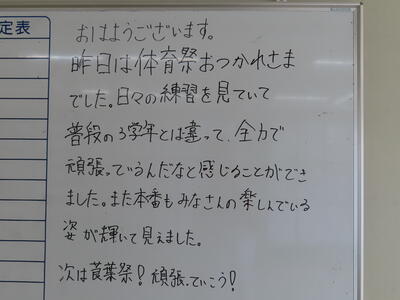 定表
おはようございます。
昨日は体育祭おつかれさま
でした。日々の練習を見ていて
普段の3学年とは違って、全力で
頑張っているんだなと感じることができ
ました。また本番もみなさんの楽しんでいる
姿が輝いて見えました。
次は萱葉祭！頑張っていこう！